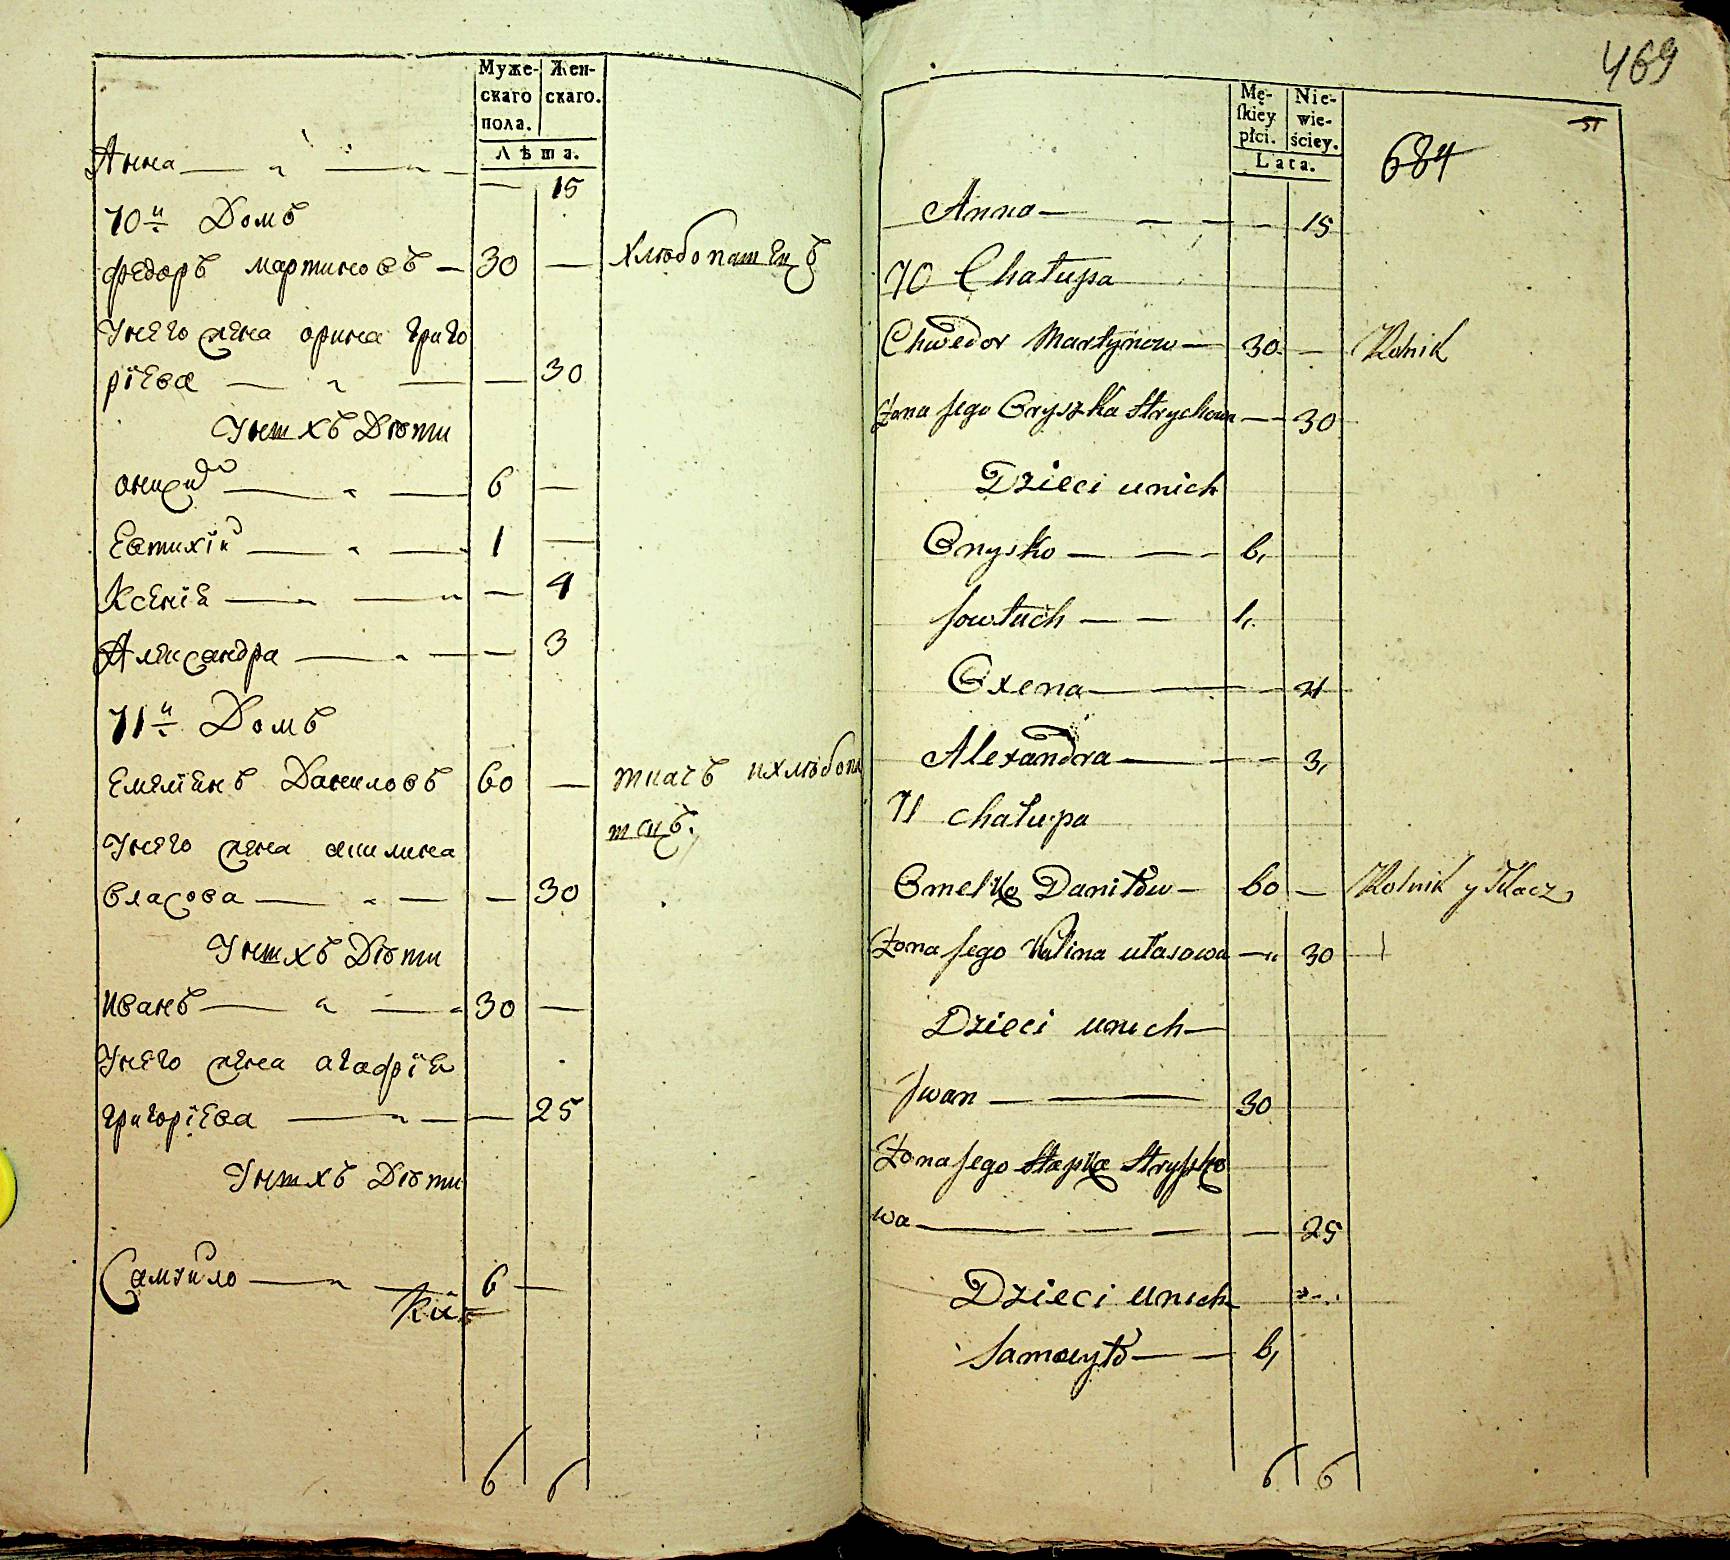 Муже- Жен-
скаго скаго.
пола.
Лѣта.
Анна — — — 15
70й Домъ
Федоръ Мартиновъ — 30 — Хлѣбопашецъ
Унего жена орина григо
ріева — — — 30
Унихъ Дѣти
6 —
Евтихій — — 1 —
Ксенія — — — 4
Александра — — — 3
71й Домъ
Емелiянъ Даниловъ 60 — ткачъ и хлѣбопа
шецъ.
Унего жена акилина
власова — — — 30
Унихъ Дѣти
Иванъ — — 30 —
Унего жена агафія
григоріева — — — 25
Унихъ Дѣти
Самуйло — — 6 —
6 6
469
Mę- Nie-
skiey wie-
płci. ściey.
Lata.
51
684
Anna — — — — 15
70 Chałupa
Chwedor Martynow — 30. — Rolnik
Żona jego Gryszka — 30
Dzieci unich
Onysko — — 6,
Jowtuch — — 1,
Oxena — — — 4
Alexandra — — — 3,
71 chałupa
Omelko Daniłow — 60 — Rolnik y Tkacz
Żona jego Kulina ułasowa — 30
Dzieci unich —
Jwan — — 30
Żona jego Hapka Hryszko
wa — — — — 25
Dzieci unich
Samuyło — — 6,
6 6